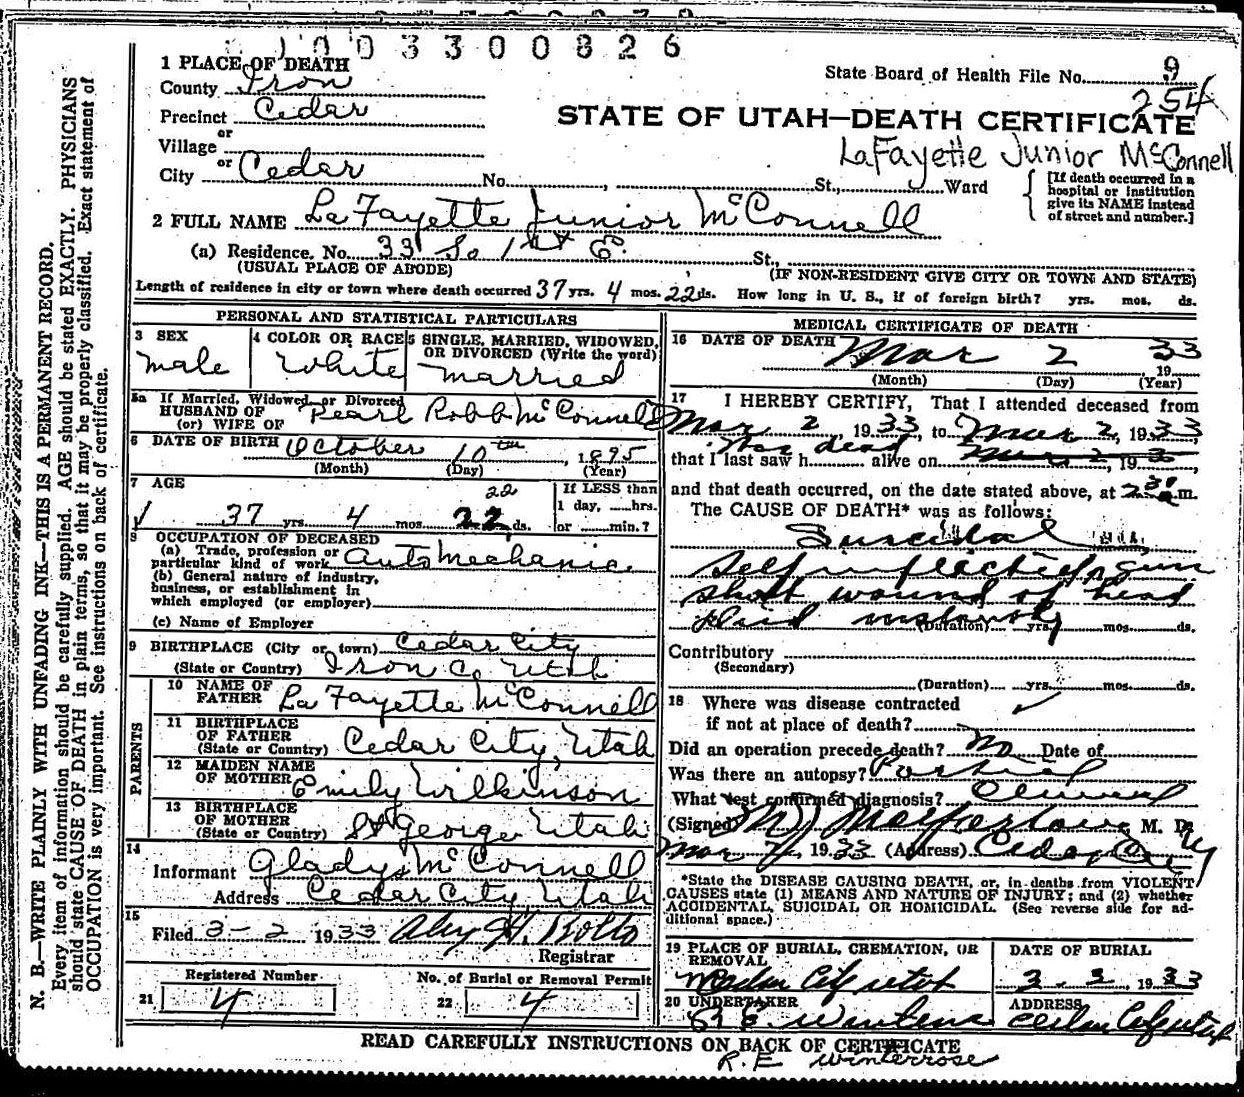 1003300826
1 PLACE OF DEATH
County Iron
State Board of Health File No. 9
254
Precinct Cedar
STATE OF UTAH—DEATH CERTIFICATE
or
Village
LaFayette Junior McConnell
or
City Cedar No. , St., Ward
[If death occurred in a hospital or institution give its NAME instead of street and number.]
2 FULL NAME LaFayette Junior McConnell
(a) Residence. No. 33 So 1st E. St.,
(USUAL PLACE OF ABODE) (IF NON-RESIDENT GIVE CITY OR TOWN AND STATE)
Length of residence in city or town where death occurred 37 yrs. 4 mos. 22 ds. How long in U. S., if of foreign birth? yrs. mos. ds.
PERSONAL AND STATISTICAL PARTICULARS
3 SEX
male
4 COLOR OR RACE
White
5 SINGLE, MARRIED, WIDOWED,
OR DIVORCED (Write the word)
married
5a If Married, Widowed or Divorced
HUSBAND OF
(or) WIFE OF Pearl Robb McConnell
6 DATE OF BIRTH October 10th, 1895
(Month) (Day) (Year)
7 AGE
22
37 yrs. 4 mos. 22 ds.
If LESS than
1 day, hrs.
or min.?
8 OCCUPATION OF DECEASED
(a) Trade, profession or
particular kind of work Auto Mechanic
(b) General nature of industry,
business, or establishment in
which employed (or employer)
(c) Name of Employer
9 BIRTHPLACE (City or town) Cedar City
(State or Country) Iron Co. Utah
PARENTS
10 NAME OF
FATHER La Fayette McConnell
11 BIRTHPLACE
OF FATHER
(State or Country) Cedar City, Utah
12 MAIDEN NAME
OF MOTHER Emily Wilkinson
13 BIRTHPLACE
OF MOTHER
(State or Country) St George Utah
14
Informant Gladys McConnell
Address Cedar City, Utah
15
Filed 3-2 1933
Registrar
Registered Number
21 4
No. of Burial or Removal Permit
22 4
MEDICAL CERTIFICATE OF DEATH
16 DATE OF DEATH Mar 2 1933
(Month) (Day) (Year)
17 I HEREBY CERTIFY, That I attended deceased from
Mar 2 1933, to Mar 2, 1933
was dead
that I last saw h alive on Mar 2, 19
and that death occurred, on the date stated above, at 2 30 m.
The CAUSE OF DEATH* was as follows:
Suicidal
Self inflicted gun
shott wound of head
died instantly
(Duration) yrs. mos. ds.
Contributory
(Secondary)
(Duration) yrs. mos. ds.
18 Where was disease contracted
if not at place of death?
Did an operation precede death? No Date of
Was there an autopsy? Partial
What test confirmed diagnosis? Clinical
(Signed) Macfarlane M. D.
Mar 2, 1933 (Address) Cedar City
*State the DISEASE CAUSING DEATH, or, in deaths from VIOLENT
CAUSES state (1) MEANS AND NATURE OF INJURY; and (2) whether
ACCIDENTAL, SUICIDAL OR HOMICIDAL. (See reverse side for ad-
ditional space.)
19 PLACE OF BURIAL, CREMATION, OR
REMOVAL
Cedar City Utah
DATE OF BURIAL
1933
20 UNDERTAKER
ADDRESS
Cedar City Utah
READ CAREFULLY INSTRUCTIONS ON BACK OF CERTIFICATE
R.E Winterrose
N. B.—WRITE PLAINLY WITH UNFADING INK—THIS IS A PERMANENT RECORD.
Every item of information should be carefully supplied. AGE should be stated EXACTLY. PHYSICIANS
should state CAUSE OF DEATH in plain terms, so that it may be properly classified. Exact statement of
OCCUPATION is very important. See instructions on back of certificate.